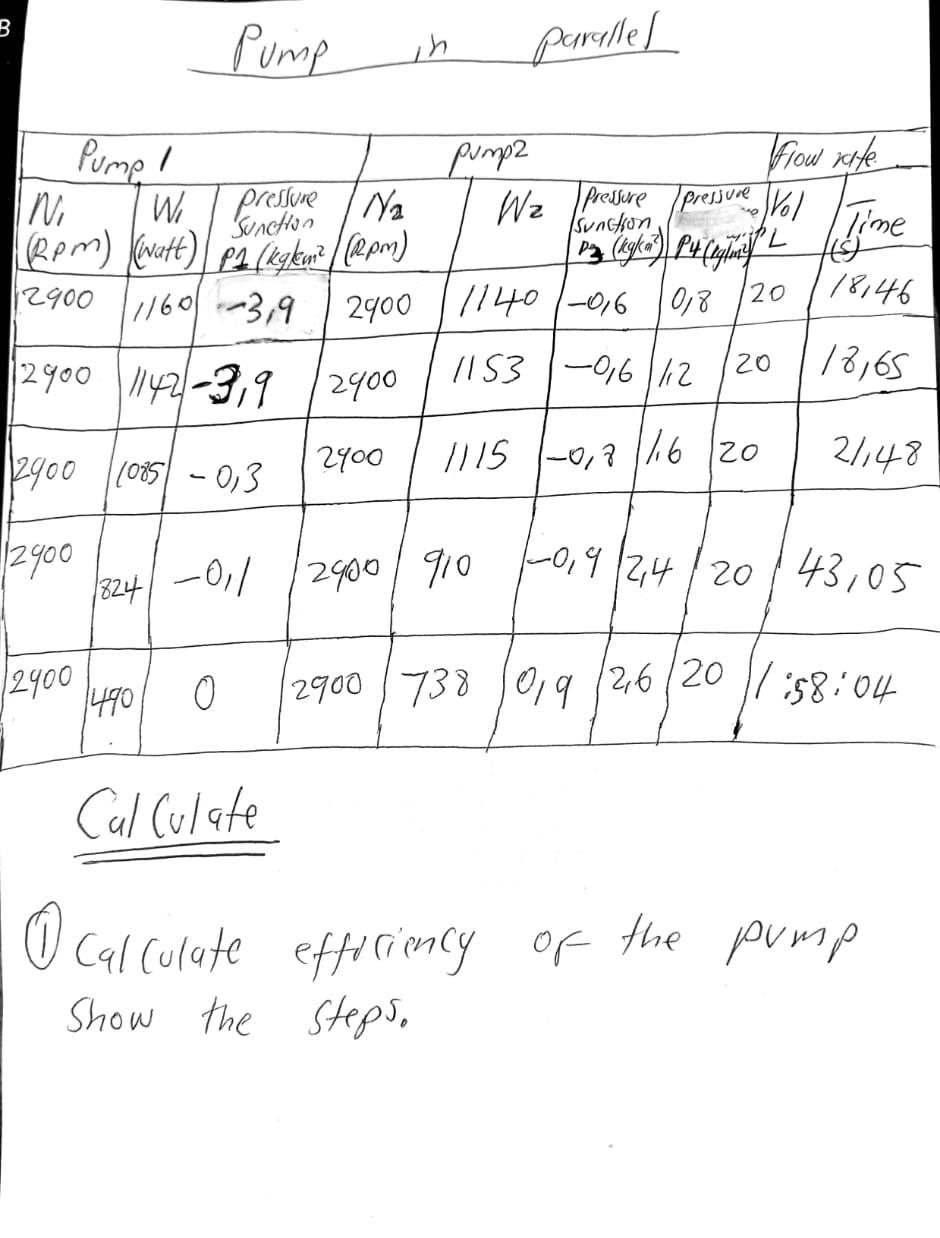 B
Pump in parallel
Pump 1 pump2 flow rate
N1 W1 pressure N2 W2 Pressure pressure Vol Time
Sunction Sunction
(Rpm) (watt) P1 (kg/cm² (Rpm) P3 (kg/cm²) P4 L (s)
2900 1160 -3,9 2900 1140 -0,6 0,8 20 18,46
2900 1142 -3,9 2900 1153 -0,6 1,2 20 18,65
2900 1085 -0,3 2900 1115 -0,8 1.6 20 21,48
2900 824 -0,1 2900 910 -0,9 2,4 20 43,05
2900 490 0 2900 738 0,9 2,6 20 1:58:04
Calculate
① Calculate efficiency of the pump
Show the steps.